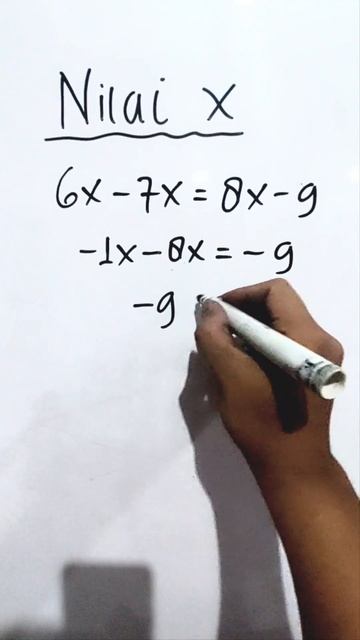 Nilai x
6x - 7x = 8x - 9
-1x - 8x = - 9
-9